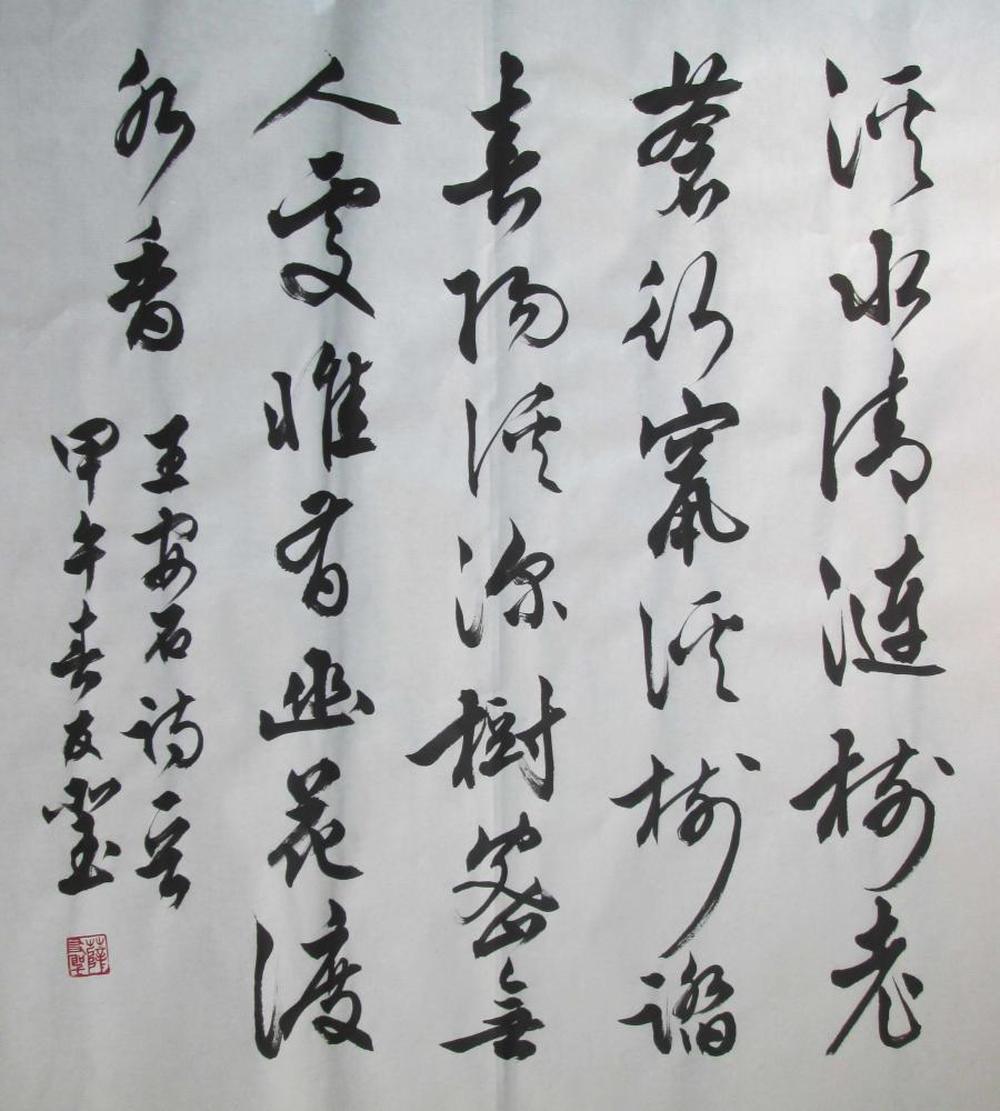 溪水清漣樹老
蒼行竄溪樹踏
春陽溪深樹密無
人處惟有幽花渡
水香
王安石詩
甲午春友聖
薛友聖